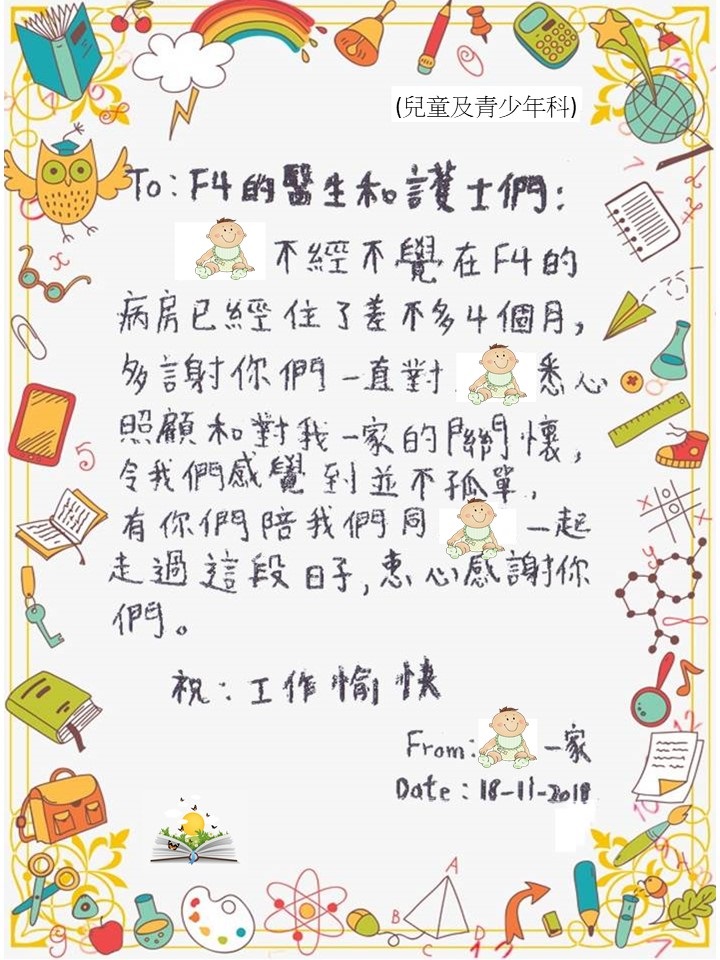 (兒童及青少年科)
To: F4的醫生和護士們:
不經不覺在F4的
病房已經住了差不多4個月,
多謝你們一直對 悉心
照顧和對我一家的關懷,
令我們感覺到並不孤單,
有你們陪我們同 一起
走過這段日子,衷心感謝你
們。
祝:工作愉快
From: 一家
Date: 18-11-2018
A
B
C
D